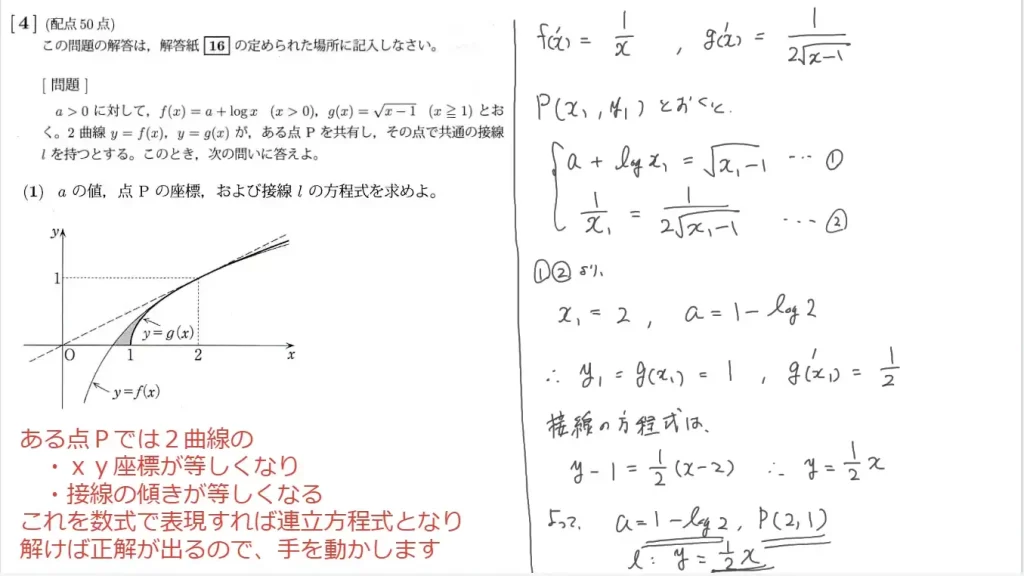 [4] (配点50点)
この問題の解答は，解答紙 16 の定められた場所に記入しなさい。
[問題]
a>0 に対して，f(x)=a+log x (x>0), g(x)=√x−1 (x≧1) とお
く。2 曲線 y=f(x), y=g(x) が，ある点 P を共有し，その点で共通の接線
l を持つとする。このとき，次の問いに答えよ。
(1) a の値，点 P の座標，および接線 l の方程式を求めよ。
y
1
y=g(x)
O 1 2 x
y=f(x)
ある点Ｐでは２曲線の
・ｘｙ座標が等しくなり
・接線の傾きが等しくなる
これを数式で表現すれば連立方程式となり
解けば正解が出るので、手を動かします
f'(x) = 1/x , g'(x) = 1/2√x−1
P(x₁, y₁) とおくと、
a + log x₁ = √x₁−1 … ①
1/x₁ = 1/2√x₁−1 … ②
①② より、
x₁ = 2 , a = 1 − log 2
∴ y₁ = g(x₁) = 1 , g'(x₁) = 1/2
接線の方程式は、
y − 1 = 1/2 (x−2) ∴ y = 1/2 x
よって、 a = 1 − log 2 , P(2, 1)
l : y = 1/2 x